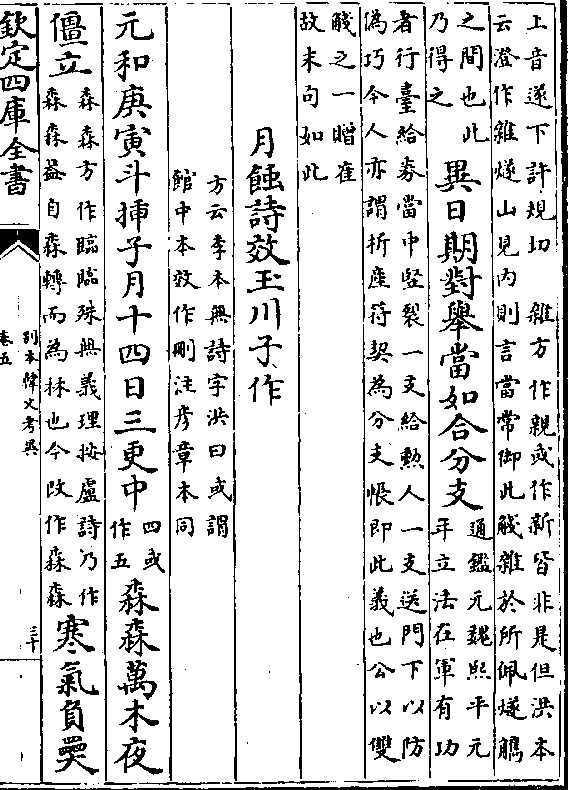 上音遂下許規切　雜方作親或作新皆非是但洪本
云澄作雜燧山見内則言當常御此觿雜於所佩燧鵰
之間也此
乃得之
異日期對舉當如合分支
通鑑元魏熙平元
年立法在軍有功
者行臺給券當中竪裂一支給勲人一支送門下以防
偽巧今人亦謂析産符契為分支帳即此義也公以雙
觿之一贈崔
故末句如此
月蝕詩效玉川子作
方云李本無詩字洪曰或謂
館中本效作刪注彦章本同
元和庚寅斗插子月十四日三更中
四或
作五
森森萬木夜
僵立
森森方作臨臨殊無義理按盧詩乃作
森森益自森轉而為林也今改作森森
寒氣負屭
欽定四庫全書
别本韓文考異
卷五
三十